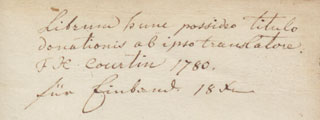 Librum hunc possideo titulo
donationis ab ipso translatore.
F K Courtin 1780.
für Einband 18